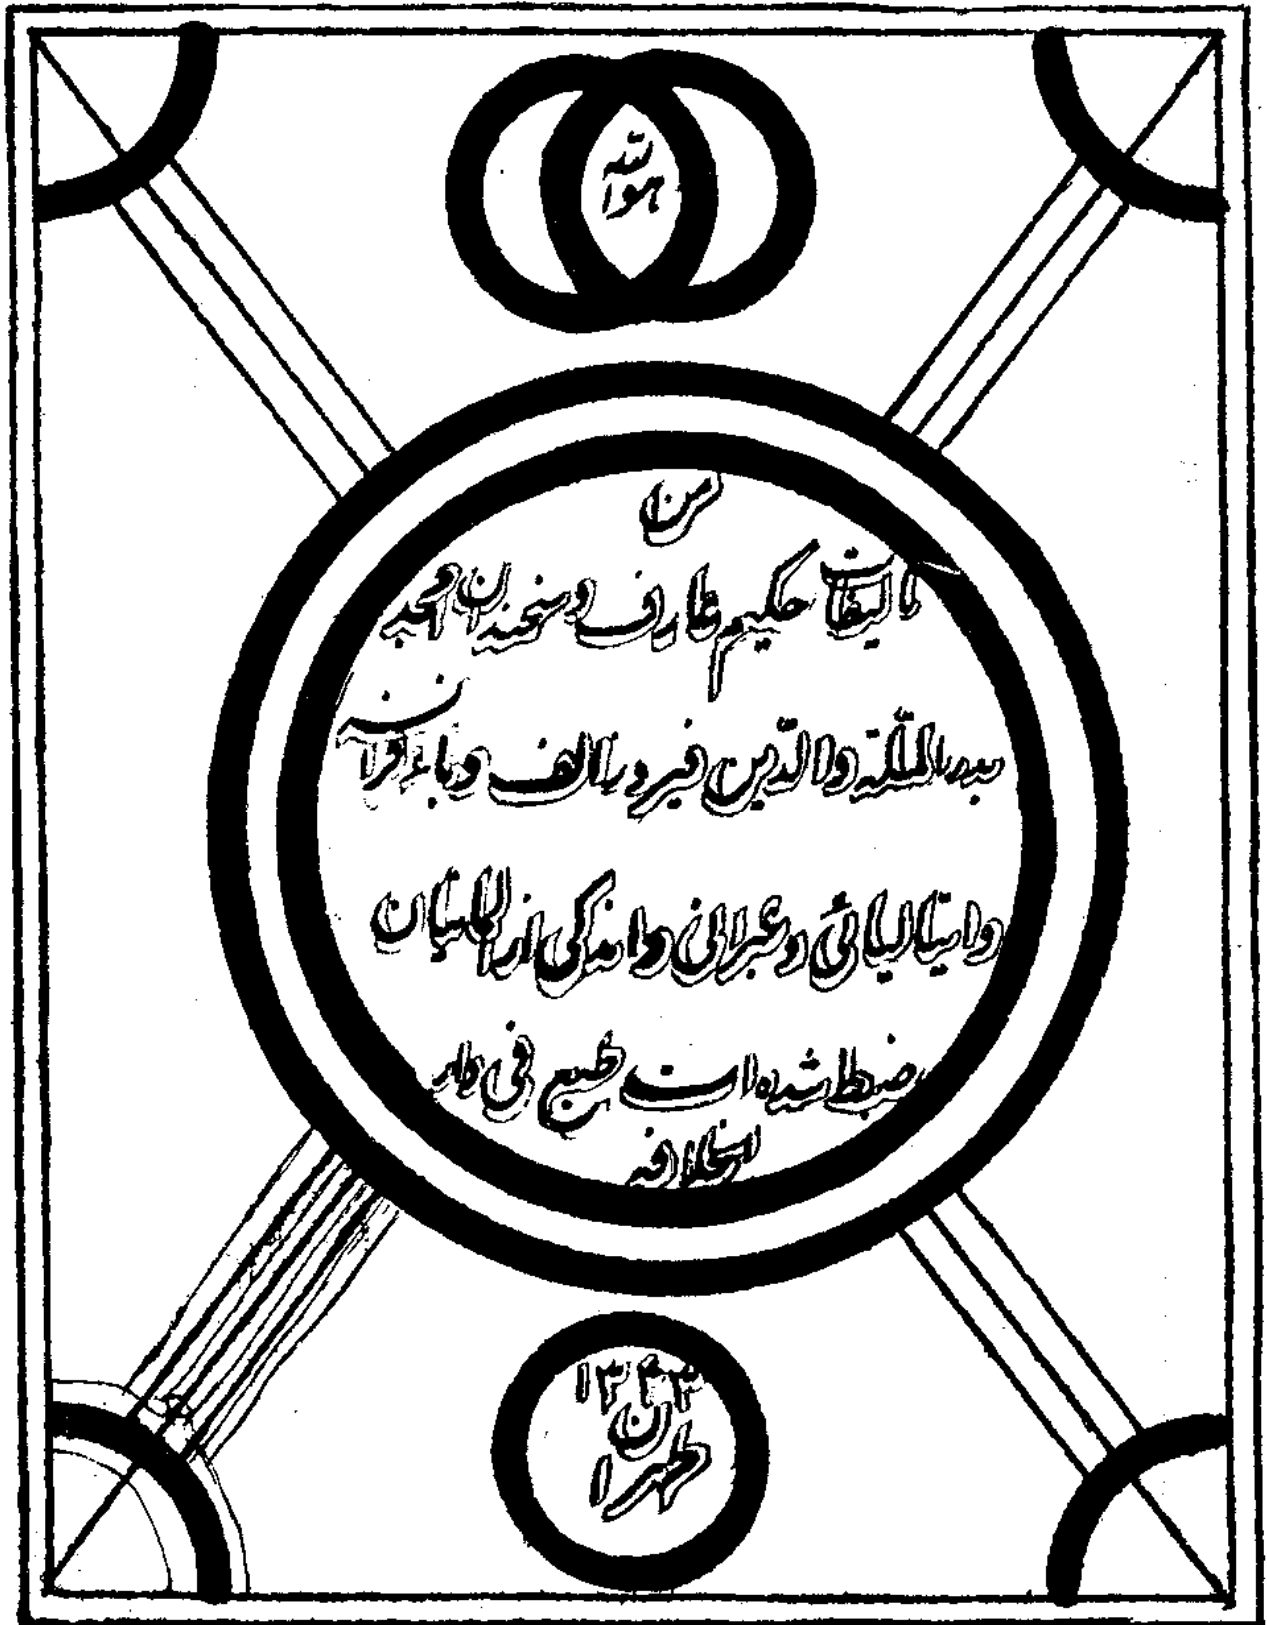 هو الله
من
تالیفات حکیم عارف و سخندان اوحد
بدر الملة و الدین فیروز الف و باء فرانسه
و ایتالیائی و عبرانی و اندکی از
ضبط شده است طبع فی دار
الخلافه
۱۳۴۳
طهران